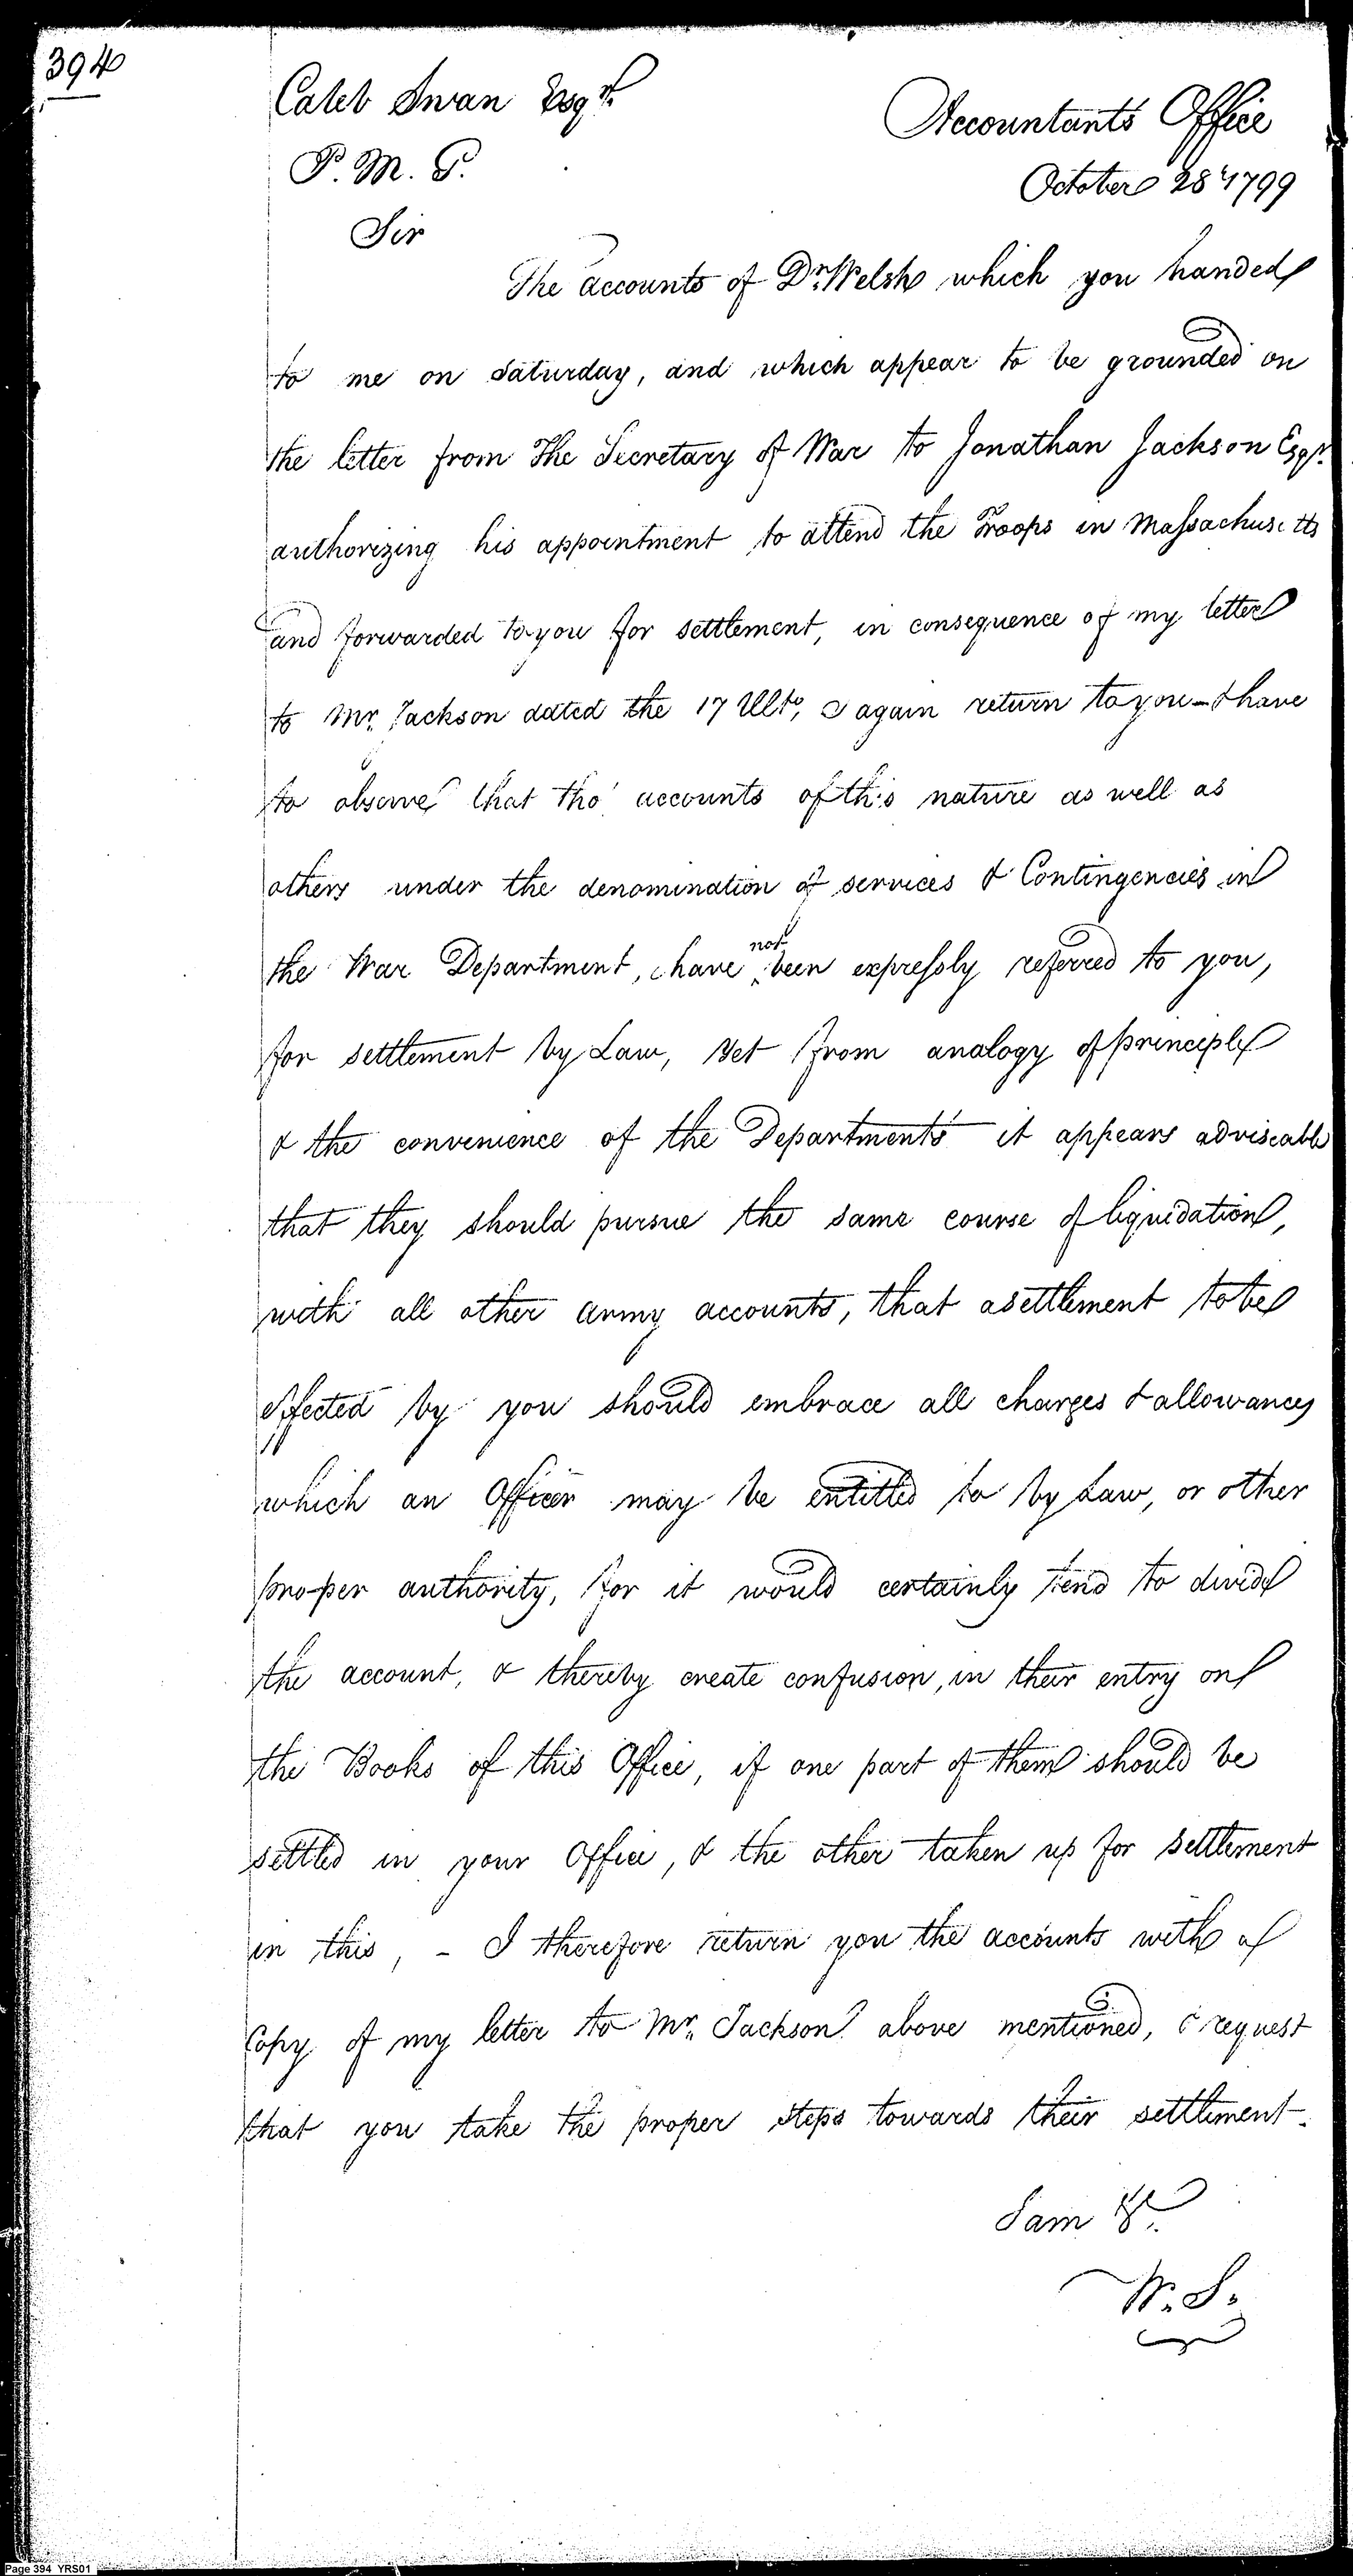 394
Caleb Swan Esqr.
P. M. G.
Accountants Office
October 28t 1799
Sir
The accounts of Dr. Welsh which you handed
to me on saturday, and which appear to be grounded on
the letter from The Secretary of War to Jonathan Jackson Esqr.
authorizing his appointment to attend the Troops in Massachusetts
and forwarded to you for settlement, in consequence of my letter
to Mr. Jackson dated the 17 Ulto, I again return to you - I have
to observe that tho' accounts of this nature as well as
others under the denomination of services & Contingencies in
the War Department, have not been expressly referred to you,
for settlement by Law, Yet from analogy of principle
& the convenience of the Department's it appears adviseable
that they should pursue the same course of liquidation,
with all other army accounts, that a settlement to be
effected by you should embrace all charges & allowances
which an Officer may be entitled to by Law, or other
proper authority, for it would certainly tend to divide
the account, & thereby create confusion, in their entry on
the Books of this Office, if one part of them should be
settled in your Office, & the other taken up for settlement
in this, - I therefore return you the accounts with a
Copy of my letter to Mr. Jackson above mentioned, & request
that you take the proper steps towards their settlement.
I am &c.
W. S.
Page 394 YRS01